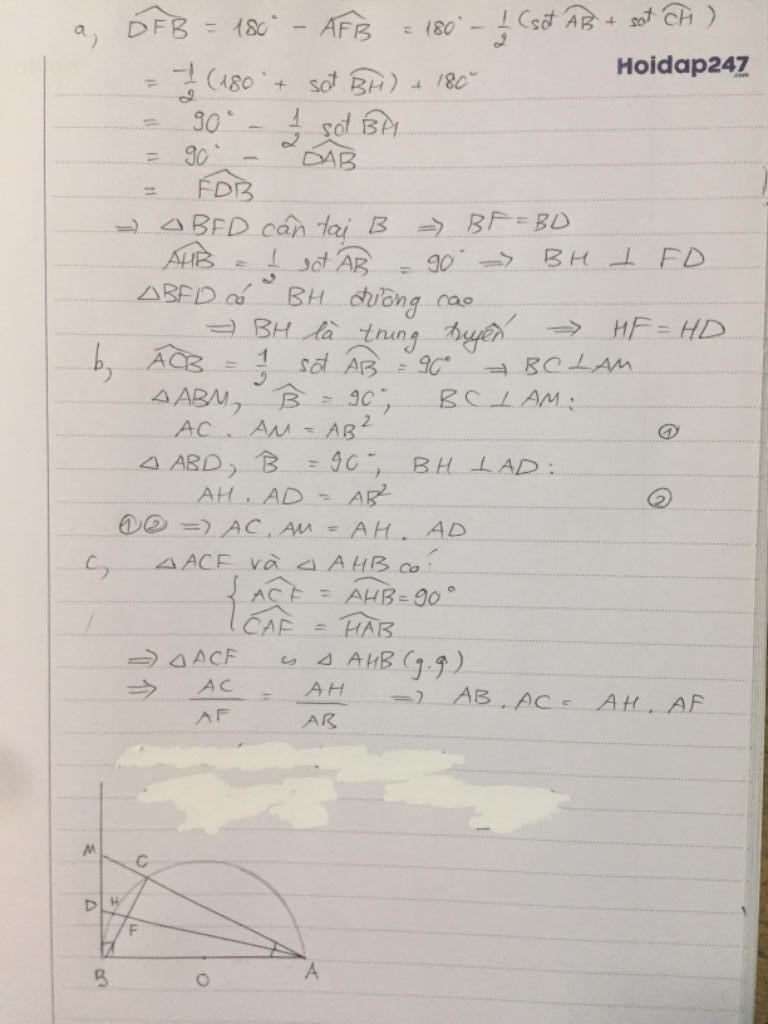 a, DFB = 180° - AFB = 180° - 1/2 (sđt AB + sđt CH)
Hoidap247
.com
= -1/2 (180° + sđt BH) + 180°
= 90° - 1/2 sđt BH
= 90° - DAB
= FDB
=> △BFD cân tại B => BF = BD
AHB = 1/2 sđt AB = 90° => BH ⊥ FD
△BFD có BH đường cao
=> BH là trung tuyến => HF = HD
b, ACB = 1/2 sđt AB = 90° => BC ⊥ AM
△ABM, B = 90°, BC ⊥ AM:
AC . AM = AB² ①
△ABD, B = 90°, BH ⊥ AD:
AH . AD = AB² ②
①② => AC . AM = AH . AD
c, △ACF và △AHB có:
{ ACF = AHB = 90°
CAF = HAB
=> △ACF ∽ △AHB (g.g)
=> AC/AF = AH/AB => AB . AC = AH . AF
M C
D H
F
B O A